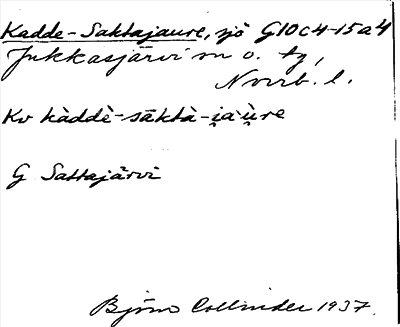 Kadde-Saktajaure, sjö G10c4-15a4
Jukkasjärvi sn o. tg,
Norrb. l.
Kv kàddè-sāktà-i̯àu̯re
G Sattajärvi
Björn Collinder 1937.